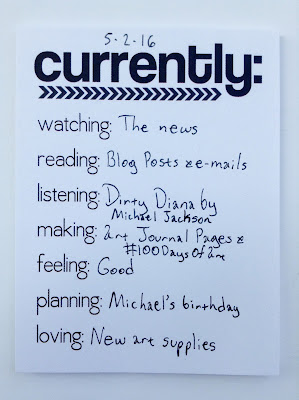 5-2-16
currently:
watching: The news
reading: Blog Posts & e-mails
listening: Dirty Diana by
Michael Jackson
making: art Journal Pages &
#100DaysOfart
feeling: Good
planning: Michael's birthday
loving: New art supplies